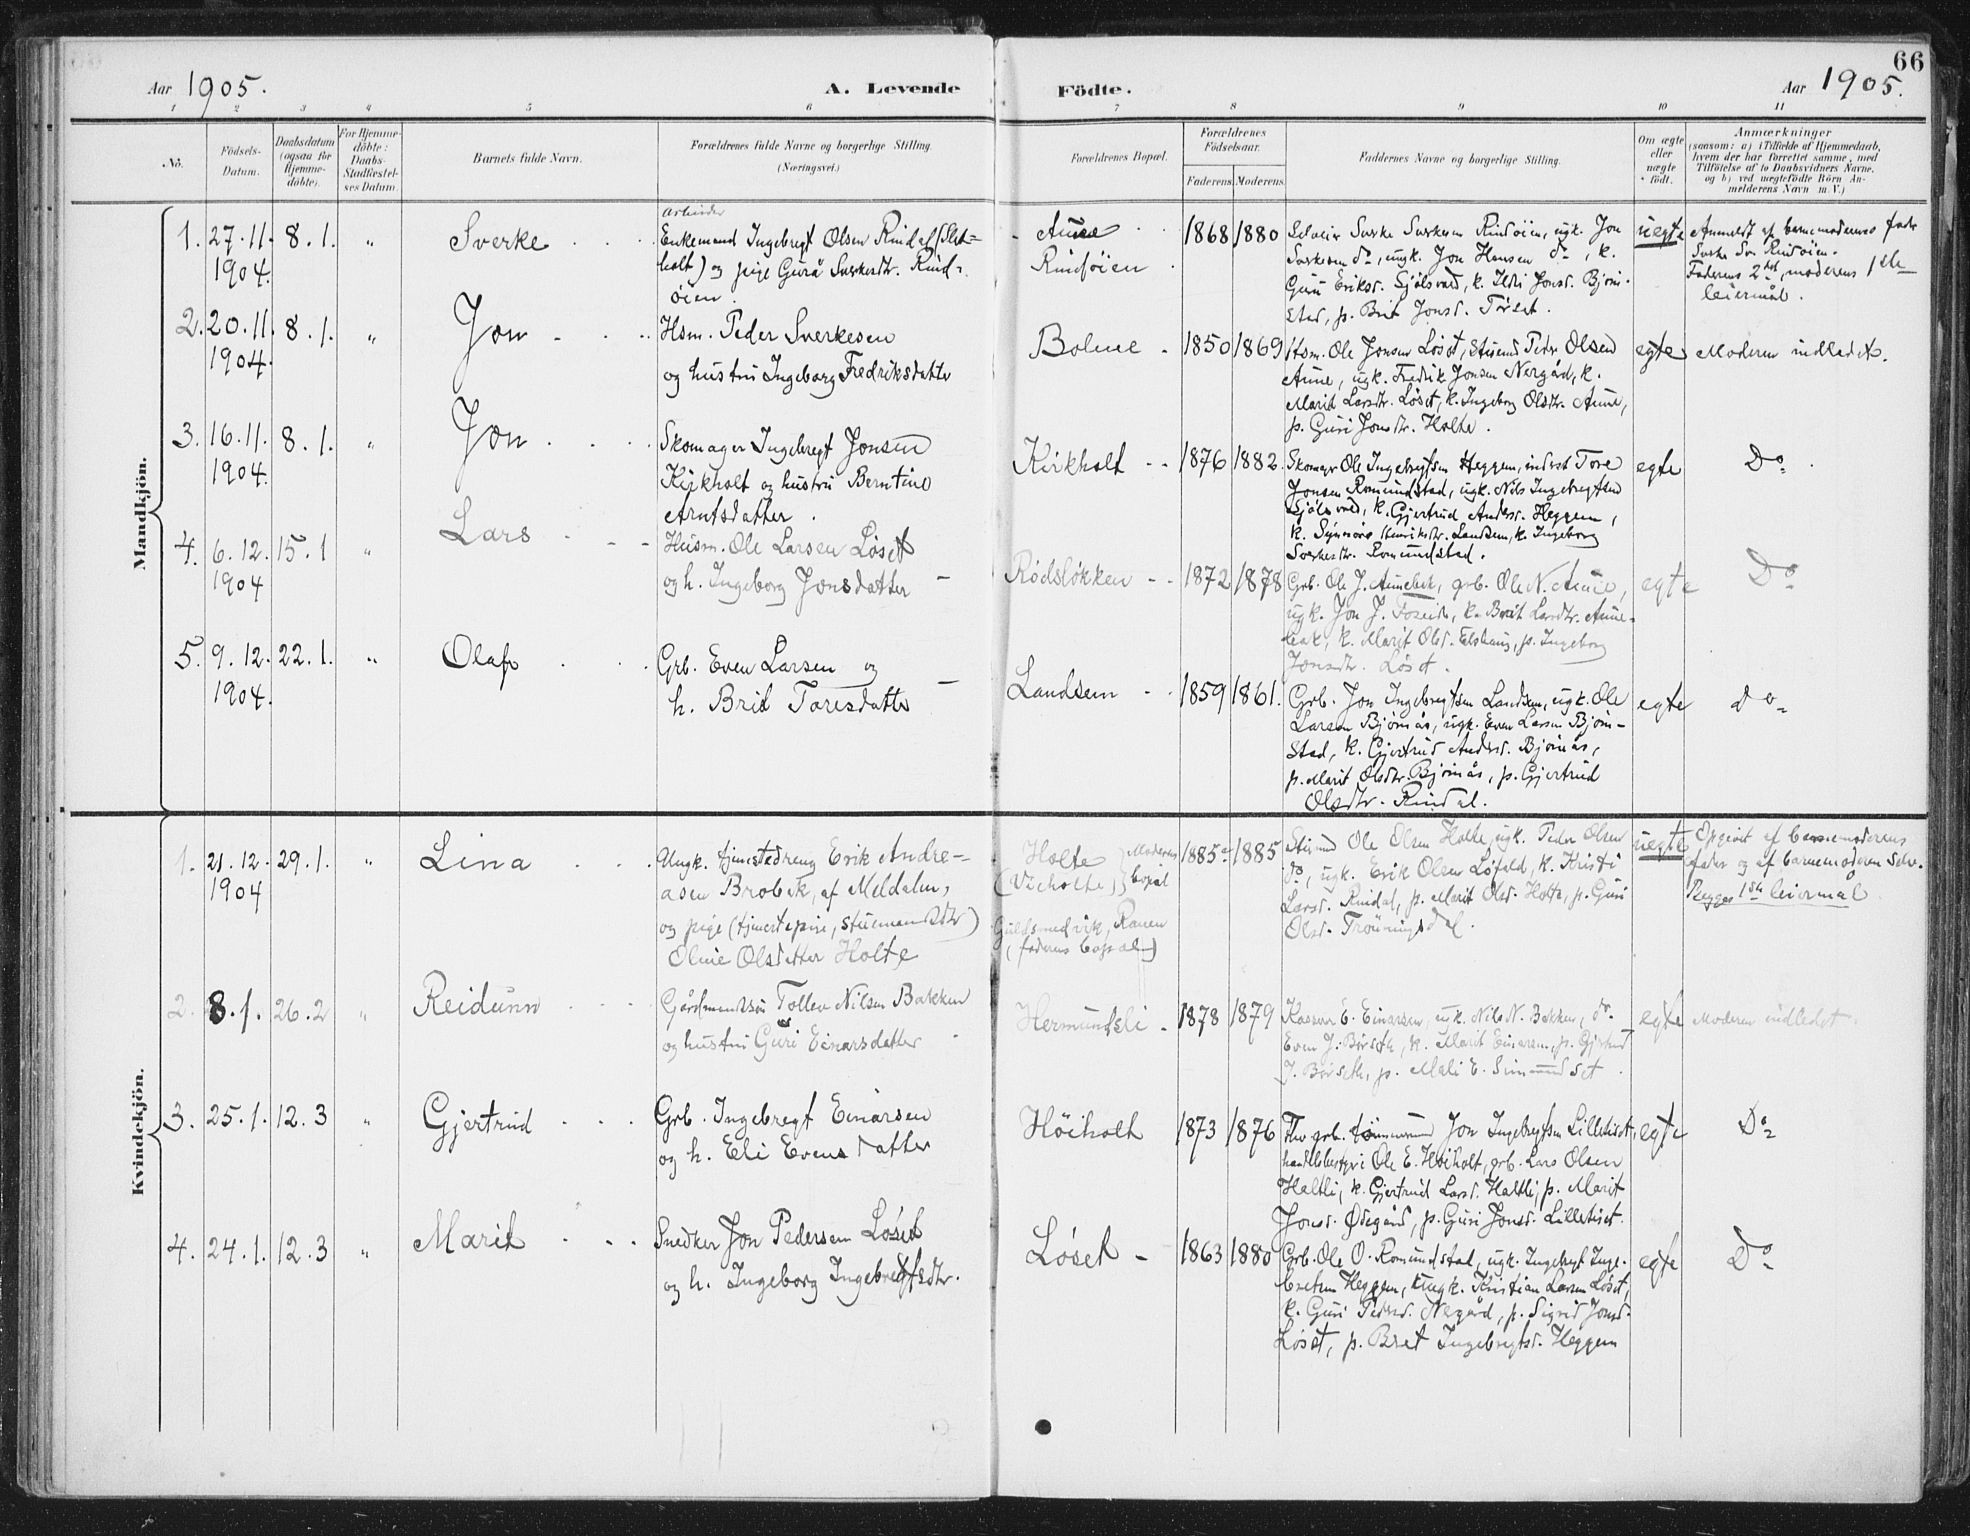 66
Aar 1905.
A. Levende
Födte.
Aar 1905.
1 2 3 4 5 6 7 8 9 10 11
No.
Födsels-
Datum.
Daabsdatum
(ogsaa for
Hjemme-
döbte).
For Hjemme-
döbte:
Daabs-
Stadfæstel-
ses Datum.
Barnets fulde Navn.
Forældrenes fulde Navne og borgerlige Stilling.
(Næringsvei.)
Forældrenes Bopæl.
Forældrenes
Födselsaar.
Faderens. Moderens.
Faddernes Navne og borgerlige Stilling.
Om ægte
eller
uægte
födt.
Anmærkninger
(saasom: a) i Tilfælde af Hjemmedaab,
hvem der har forrettet samme, med
Tilföielse af to Daabsvidners Navne.
og b) ved uægtefödte Börn An-
melderens Navn m. V.)
Mandkjön.
1. 27.11. 1904. 8.1. " Sverke
Arbeider
Enkemand Ingebregt Olsen Rindal (Slet-
holt) og pige Gurå Sverkesdtr. Rind-
öien.
Aune
Rindöien
1868 1880
Sverke Sverkesen Rindöien, ugk. Jon
Sverkesen do, ungk. Jon Hansen do, k.
Guri Eriksd. Sjölsvold, k. Ildri Jonsd. Björn-
stad, p. Brit Jonsd. Törset.
uegte
Anmeldt af barnemoderens fader
Sverke Sv. Rindöien.
Faderens 2det, moderens 1ste
leiermål.
2. 20.11. 1904. 8.1. " Jon
Hsm. Peder Sverkesen
og hustru Ingeborg Fredriksdatter
Bolme
1850 1869
Hsm. Ole Jonsen Löset, Peder Olsen
Aune, ugk. Fredrik Jonsen Nergård, k.
Marit Larsdtr. Löset, k. Ingeborg Olsdtr. Aune,
p. Guri Jonsdtr. Holte.
egte
Moderen indledet.
3. 16.11. 1904. 8.1. " Jon
Skomager Ingebregt Jonsen
Kirkholt og hustru Berntine
Arntsdatter.
Kirkholt
1876 1882.
Skomager Ole Ingebregtsen Heggem, inderst Tore
Jonsen Romundstad, ugk. Nils Ingebregtsen
Sjölsvold, k. Gjertrud Andersd. Heggem,
k. Henriksdtr. Landsem, k. Ingeborg
Sverkesdtr. Romundstad.
egte
Do.
4. 6.12. 1904 15.1 " Lars
Husm. Ole Larsen Löset
og h. Ingeborg Jonsdatter
Rödslökken
1872 1878
Grb. Ole J. Aunebak, grb. Ole N. Aune,
ugk. Jon J. Foseide, k. Berit Larsdtr. Aune-
bak, k. Marit Olsd. Elshaug, p. Ingeborg
Jonsdtr. Löset.
egte
Do
5. 9.12. 1904. 22.1. " Olaf
Grb. Even Larsen og
h. Brit Toresdatter
Landsem
1859 1861.
Grb. Jon Ingebregtsen Landsem, ugk. Ole
Larsen Björnås, ugk. Even Larsen Björn-
stad, k. Gjertrud Andersd. Björnås,
p. Marit Olsdtr. Björnås, p. Gjertrud
Olsdtr. Rindal.
egte
do
Kvindekjön.
1. 21.12. 1904 29.1. " Lina
Ungk. tjenestedreng Erik Andre-
asen Brobek, af Meldalen,
og pige (tjenestepige, stuemandsdtr)
Oline Olsdatter Holte
Holte
(Vieholte)
Moderens
bopæl
Guldsmedvik, Ranen
(faderens bopæl)
1885 1885
Ole Olsen Holte, ugk. Peder Olsen
do, ugk. Erik Olsen Löfald, k. Kristi
Larsd. Rindal, p. Marit Olsd. Holte, p. Guri
Olsd. Tröningsdal.
uegte
Opgivet af barnemoderens
fader og af barnemoderen selv.
Begges 1ste leiermål
2. 8.1. 26.2 " Reidunn
Gårdmandssön Tollev Nilsen Bakken
og hustru Guri Einarsdatter
Hermundsli
1878 1879
E. Einarsen, ugk. Nils N. Bakken, do.
Even J. Börseth, k. Marit Einarsen, p. Gjertrud
J. Börseth, p. Mali E. Simundset.
egte
Moderen indledet.
3. 25.1. 12.3 " Gjertrud
Grb. Ingebregt Einarsen
og h. Eli Evensdatter
Höiholt
1873 1876
grb. tömmermand Jon Ingebregtsen Lilletiset,
handelsbestyrer Ole E. Höiholt, grb. Lars Olsen
Haltli, k. Gjertrud Larsd. Haltli, p. Marit
Jonsd. Ödegård, p. Guri Jonsd. Lilletiset.
egte
Do
4. 24.1. 12.3 " Marit
Snedker Jon Pedersen Löset
og h. Ingeborg Ingebregtsdtr.
Löset
1863 1880
Grb. Ole O. Romundstad, ugk. Ingebregt Inge-
bretsen Heggem, ungk. Kristian Larsen Löset,
k. Guri Pedersd. Negård, p. Sigrid Jonsd.
Löset, p. Bret Ingebregtsd. Heggem
egte
Do